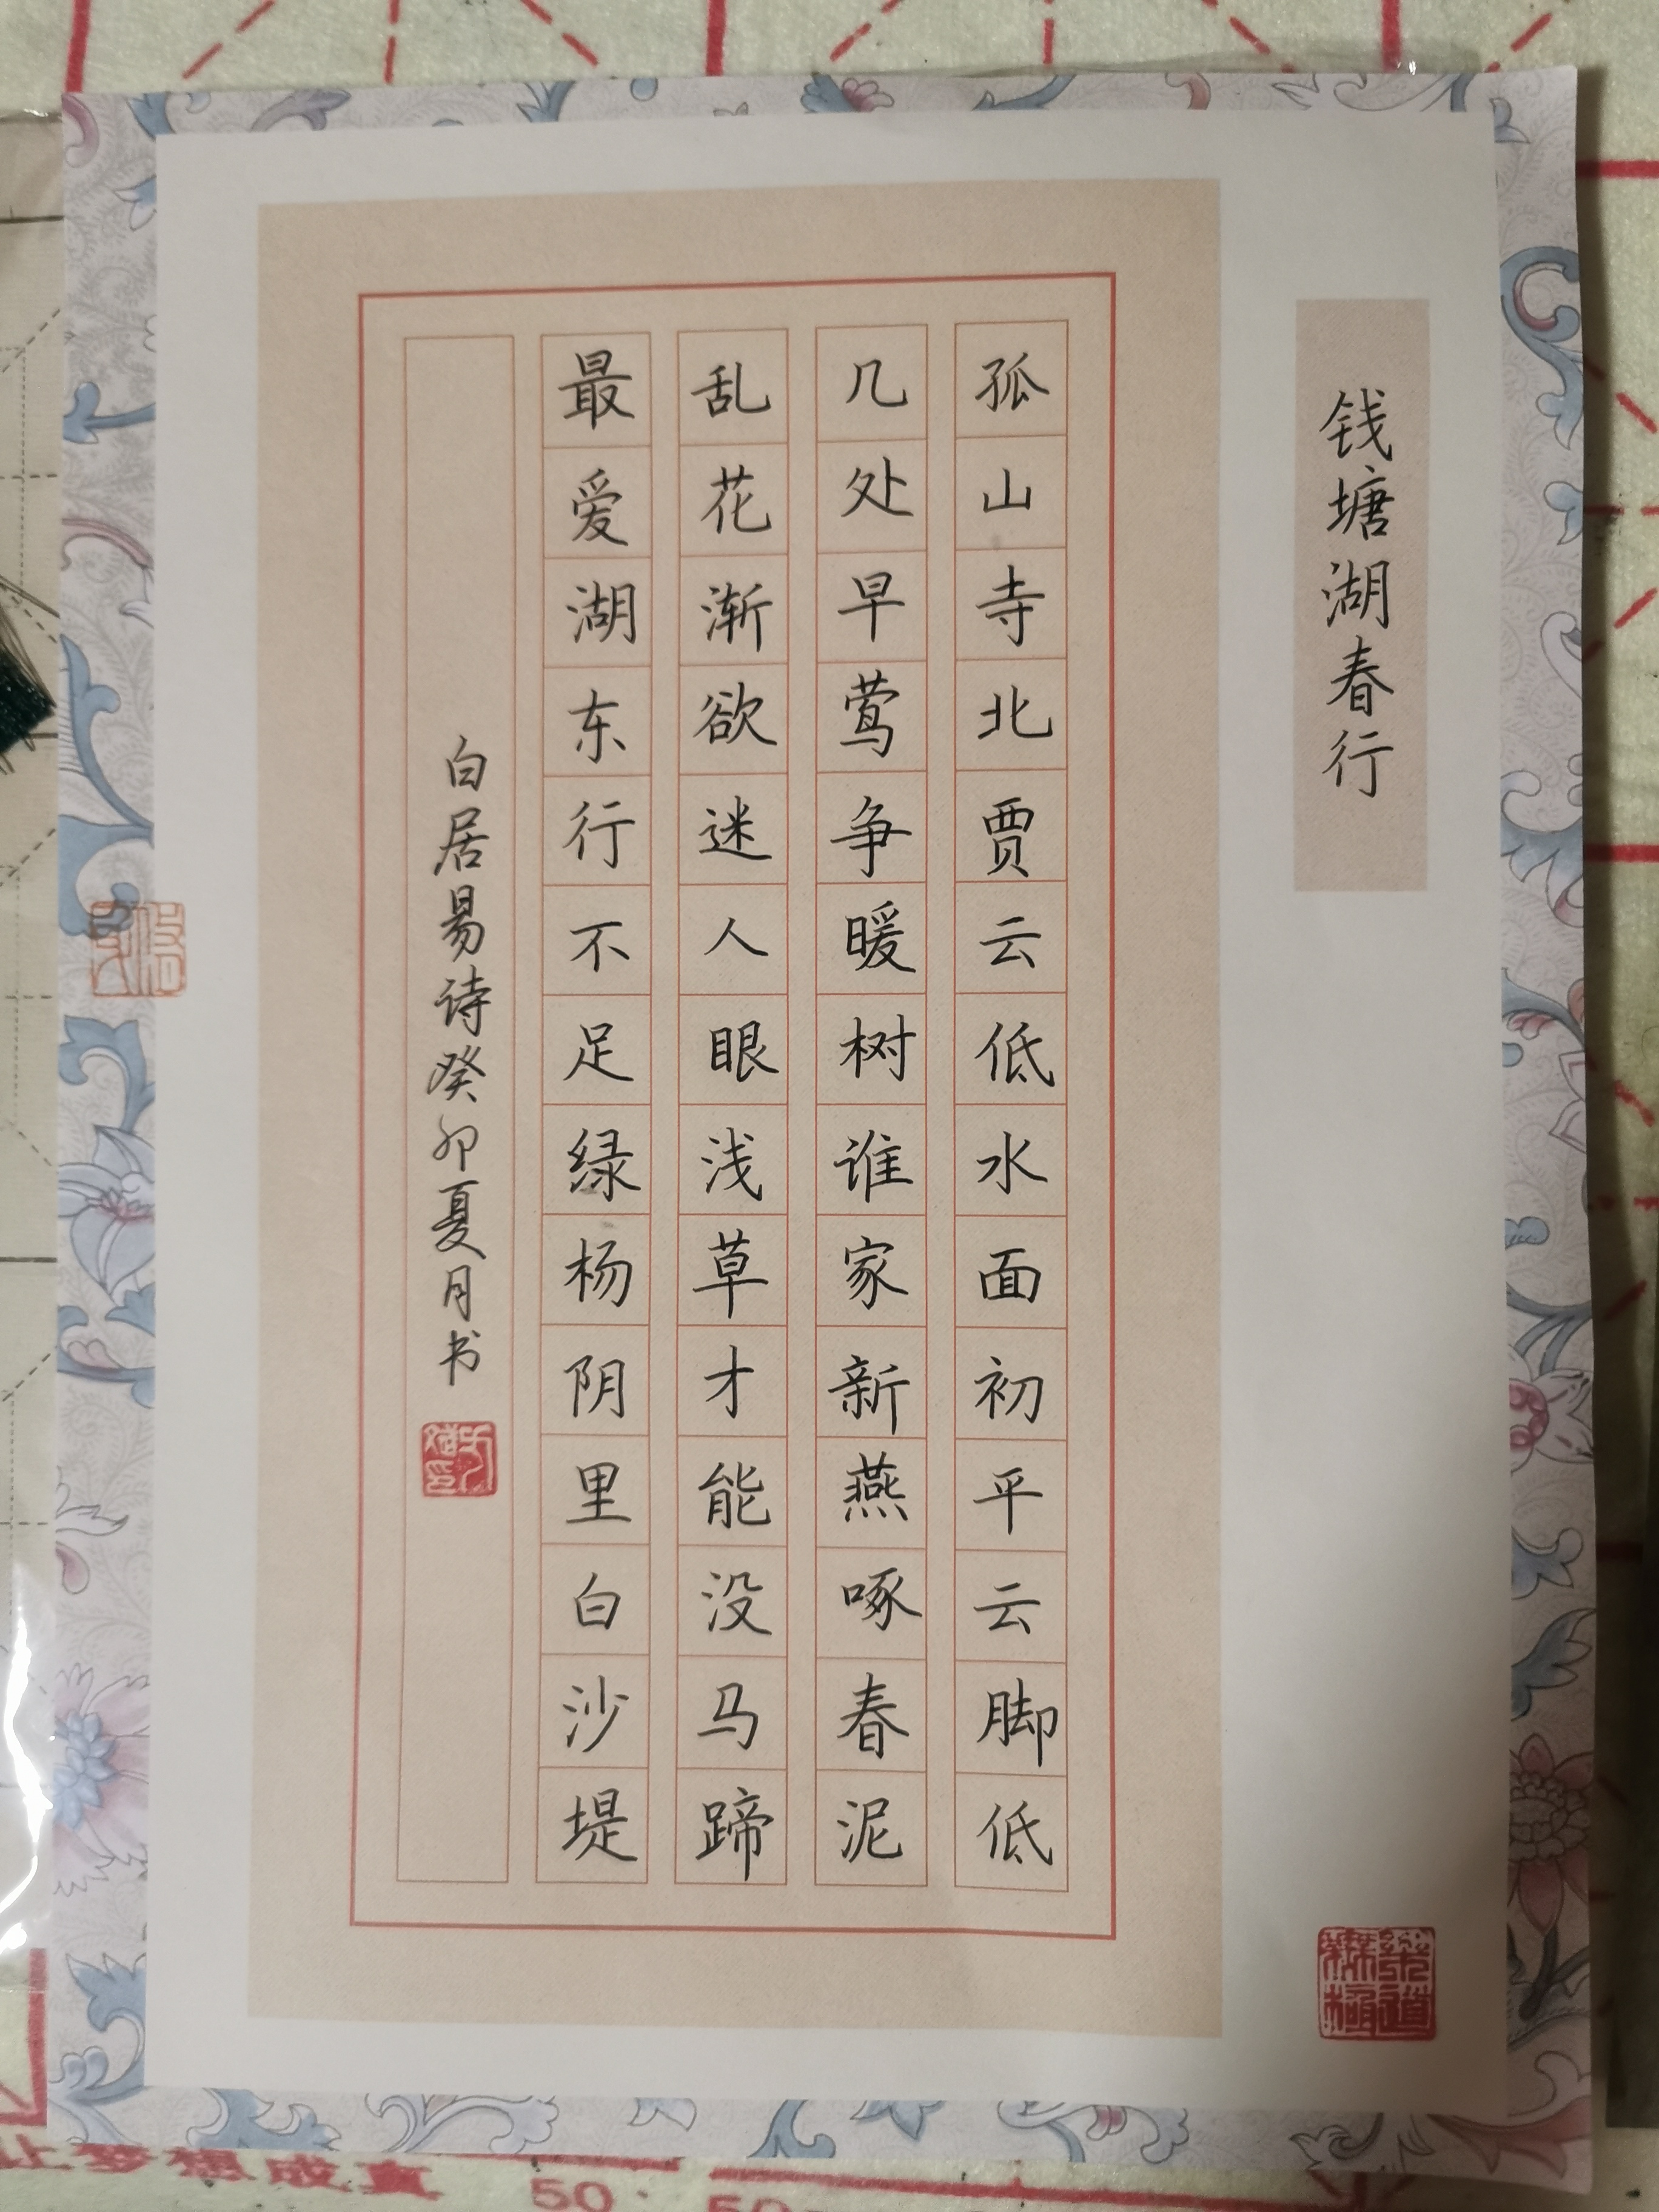 钱塘湖春行
孤山寺北贾云低水面初平云脚低
几处早莺争暖树谁家新燕啄春泥
乱花渐欲迷人眼浅草才能没马蹄
最爱湖东行不足绿杨阴里白沙堤
白居易诗癸卯夏月书
让梦想成真
50
50